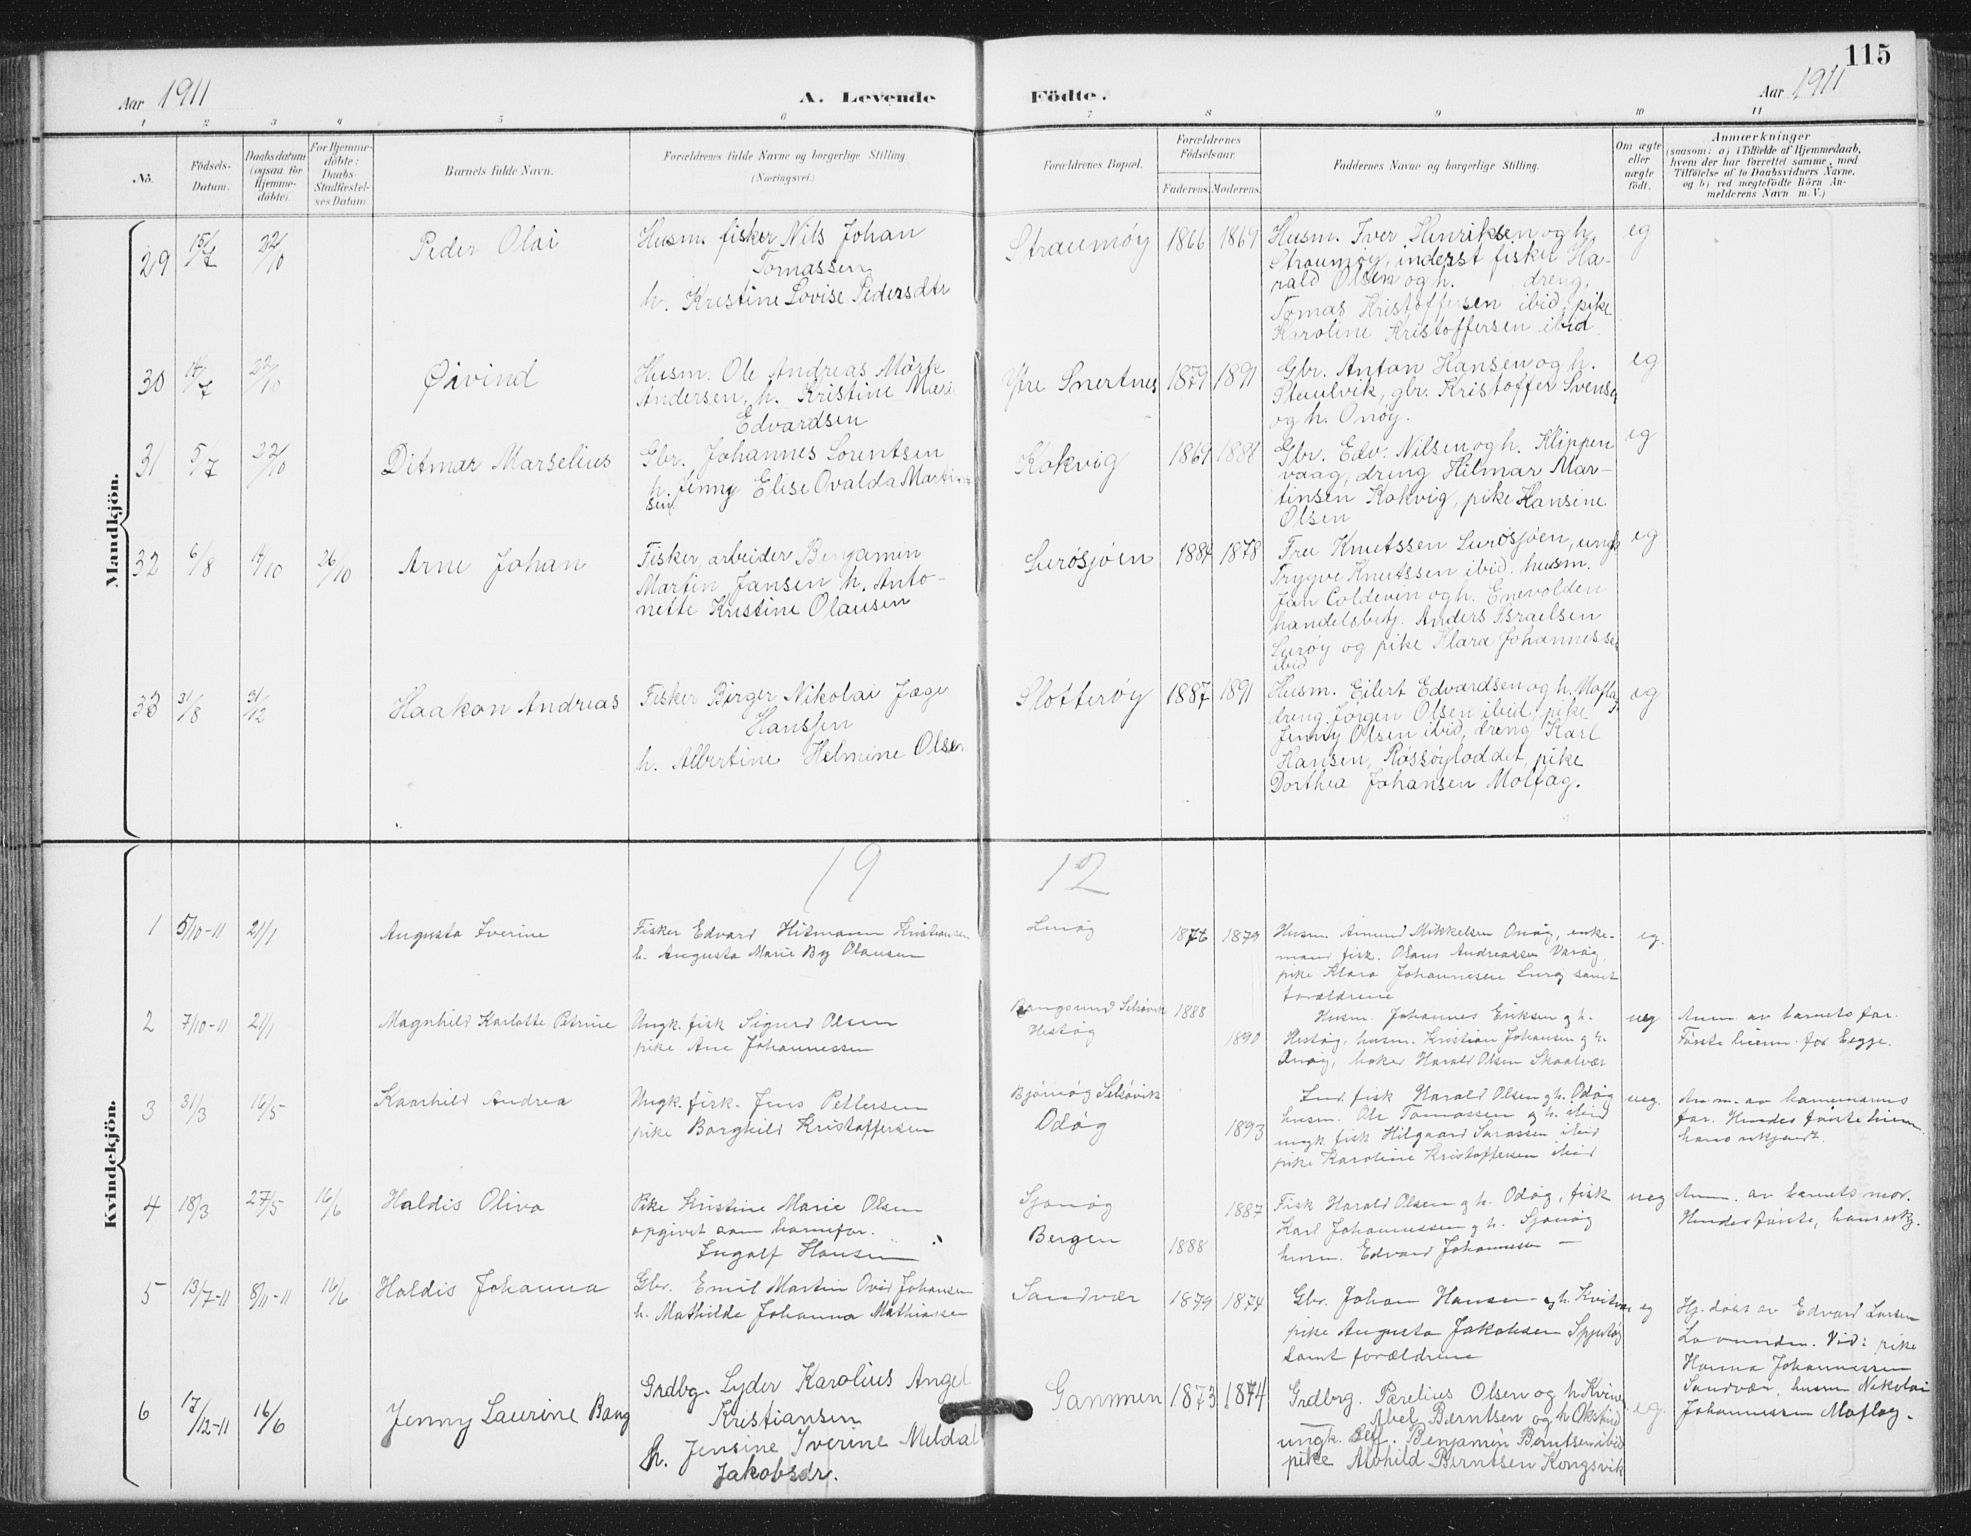 115
Aar 1911
A. Levende
Födte.
Aar 1911
1 2 3 4 5 6 7 8 9 10 11
No.
Födsels-
Datum.
Daabsdatum
(ogsaa för
Hjemme-
döbte).
For Hjemme-
döbte:
Daabs-
Stadfæstel-
ses Datum.
Barnets fulde Navn.
Forældrenes fulde Navne og borgerlige Stilling
(Næringsvei.)
Forældrenes Bopæl.
Forældrenes
Födselsaar.
Faderens. Moderens.
Faddernes Navne og borgerlige Stilling.
Om ægte
eller
uægte
födt.
Anmærkninger
(saasom: a) i Tilfælde af Hjemmedaab,
hvem der har forrettet samme, med
Tilföielse af to Daabsvidners Navne,
og b) ved uægtefödte Börn An-
melderens Navn m. V.)
Mandkjön.
29 15/7 22/10 Peder Olai
Husm. fisker Nils Johan
Tomassen
h. Kristine Lovise Pedersdtr
Straumøy 1866 1869
Husm. Iver Henriksen og h.
Straumøy, inderst fisker Ha-
rald Olsen og h. dreng,
Tomas Kristoffersen ibid, pike
Karoline Kristoffersen ibid
eg
30 14/7 22/10 Øivind
Husm. Ole Andreas Mørk
Andersen, h. Kristine Marie
Edvardsen
Ytre Snertnes 1879 1891
Gbr. Anton Hansen og h.
Stuulvik, gbr. Kristoffer Svensen
og h. Onøy.
eg
31 5/7 22/10 Ditmar Marselius
Gbr. Johannes Lorentsen
h. Jenny Elise Ovalda Martin-
sen
Kokvig 1869 1888
Gbr. Edv. Nilsen og h. Klippen
vaag, dreng Hilmar Mar-
tinsen Kokvig, pike Hansine
Olsen
eg
32 6/8 4/10 26/10 Arne Johan
Fisker, arbeider Benjamin
Martin Jansen h. Anto-
nette Kristine Olausen
Lurøsjøen 1884 1878
Fru Knutssen Lurøsjøen, ungk
Trygve Knutssen ibid. husm.
Jan Coldevin og h. Enevolden
handelsbetj. Anders Israelsen
Lurøy og pike Klara Johannessen
ibid
eg
33 31/8 31/12 Haakon Andreas
Fisker Birger Nikolai Jæge
Hanssen
h. Albertine Helmine Olsen
Slotterøy 1887 1891
Husm. Eilert Edvardsen og h. Moflag
dreng Jørgen Olsen ibid, pike
Jenny Olsen ibid, dreng Karl
Hansen, Røssøyloddet, pike
Dorthea Johansen Moflag.
eg
Kvindekjön.
19 12
1 5/10-11 21/1 Augusta Iverine
Fisker Edvard Hitmann Kristiansen
h. Augusta Marie By Olausen
Lurøy 1876 1879
Husm. Amund Mikkelsen Onøy, enke-
mand fisk. Olaus Andreassen Varøy,
pike Klara Johannesen Lurøy samt
forældrene
eg.
2 7/10-11 21/1 Magnhild Karlotte Petrine
Ungk. fisk Sigurd Olsen
pike Ane Johannessen
Bangsund Selsøvik 1888
Hestøy 1890
Husm. Johannes Eriksen og h.
Hestøy, husm. Kristian Johansen og h.
Onøy, baker Harald Olsen Skaalvær
ueg
Anm. av barnets far.
Første leierm. for begge.
3 31/3 16/5 Kaarhild Andrea
Ungk. fisk. Jens Pettersen
pike Borghild Kristoffersen
Bjørnøy Selsøvik
Odøy 1893
Ind. fisk Harald Olsen og h. Odøy
husm. Ole Tomassen og h. ibid
ungk. fisk Hilgaard Larassen ibid
pike Karoline Kristoffersen ibid
ueg.
Anm. av barnemorens
far. Hendes første leierm.
hans ukjendt.
4 18/3 27/5 16/6 Haldis Oliva
Pike Kristine Marie Olsen
opgivet som barnefar.
Ingolf Hansen
Sjonøy 1887
Bergen 1888
Fisk Harald Olsen og h. Odøy, fisk
Karl Johannessen og h. Sjonøy
husm. Edvard Johannessen —
ueg
Anm. av barnets mor.
Hendes første, hans ukj.
5 13/7-11 8/11-11 16/6 Haldis Johanna
Gbr. Emil Martin Ovid Johansen
h. Mathilde Johanna Mathiassen
Sandvær 1879 1874
Gbr. Johan Hansen og h. Kvitvær
pike Augusta Jakobsen Spjutøy
samt forældrene
eg
Hj. døbt av Edvard Larsen
Lovunden. Vid: pike
Hanna Johannessen
Sandvær, husm Nikolai
Johannessen Moflag.
6 17/12-11 16/6 Jenny Laurine Bang
Grdbg. Lyder Karolius Angel
Kristiansen
h. Jensine Iverine Meldal
Jakobsdr.
Gammen 1873 1874
Grdbrg. Parelius Olsen og h Kvine
Abel Berntsen og h Okstind
ungk. Elf. Benjamin Berntsen ibid
pike Alvhild Berntsen Kongsvik
eg.